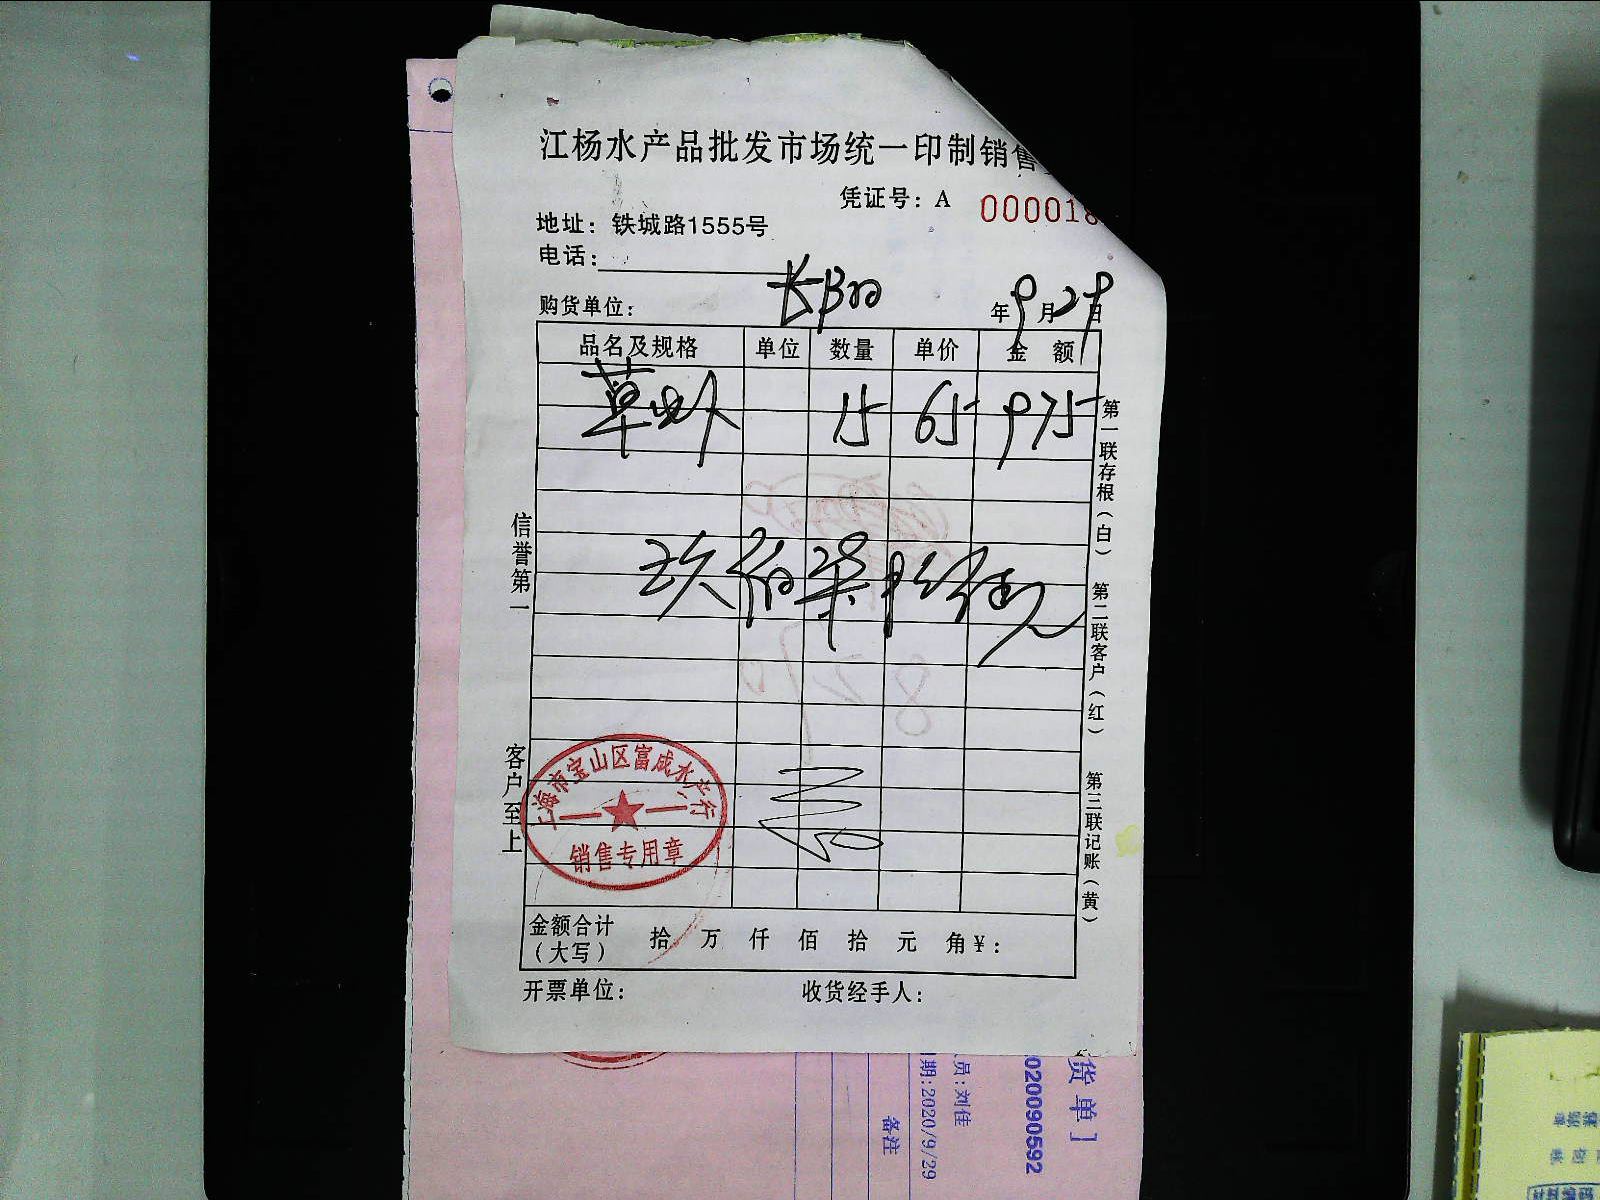 江杨水产品批发市场统一印制销售
凭证号：A 000018
地址：铁城路1555号
电话：
购货单位： 年9月29日
品名及规格 单位 数量 单价 金 额
草虾 15 65 975
玖佰柒拾伍元
信誉第一
客户至上
第一联存根（白） 第二联客户（红） 第三联记账（黄）
上海市宝山区富成水产行
销售专用章
金额合计（大写） 拾 万 仟 佰 拾 元 角￥：
开票单位： 收货经手人：
货单】
020090592
员:刘佳
期:2020/9/29
备注